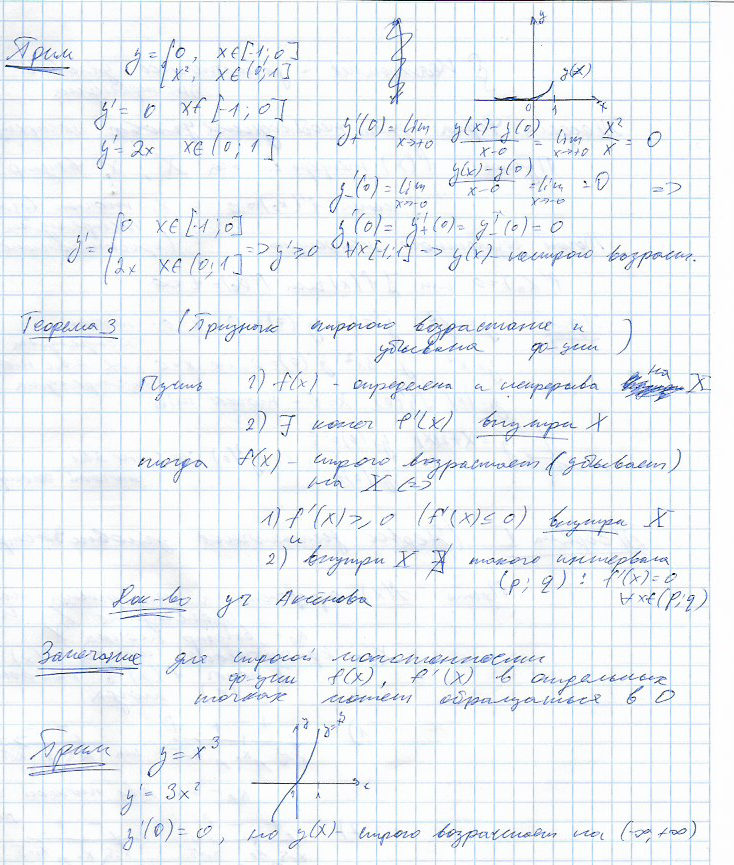 Прим y = { 0, x∈[-1; 0]
x², x∈(0; 1]
y' = 0 x∈[-1; 0]
y' = 2x x∈(0; 1]
y
y(x)
0 1 x
y'₊(0) = lim x→+0 (y(x)-y(0))/(x-0) = lim x→+0 x²/x = 0
y'₋(0) = lim x→-0 (y(x)-y(0))/(x-0) = lim x→-0 = 0 =>
y'(0) = y'₊(0) = y'₋(0) = 0
y' = { 0 x∈[-1; 0]
2x x∈(0; 1] => y' ≥ 0 ∀x[-1; 1] => y(x) - нестрого возраст.
Теорема 3 (Признак строгого возрастание и
убывана ф-ции)
Пусть 1) f(x) - определена и непрерывна на X
2) ∃ конеч f'(x) внутри X
тогда f(x) - строго возрастает (убывает)
на X <=>
1) f'(x) ≥ 0 (f'(x) ≤ 0) внутри X
и
2) внутри X ∄ такого интервала
(p; q) : f'(x) = 0
∀x∈(p; q)
Док-во уч Аксёнова
Замечание для строгой монотонности
ф-ции f(x), f'(x) в отдельных
точках может обращаться в 0
Прим y = x³
y' = 3x²
y y=x³
1 x
y'(0) = 0, но y(x) - строго возрастает на (-∞, +∞)